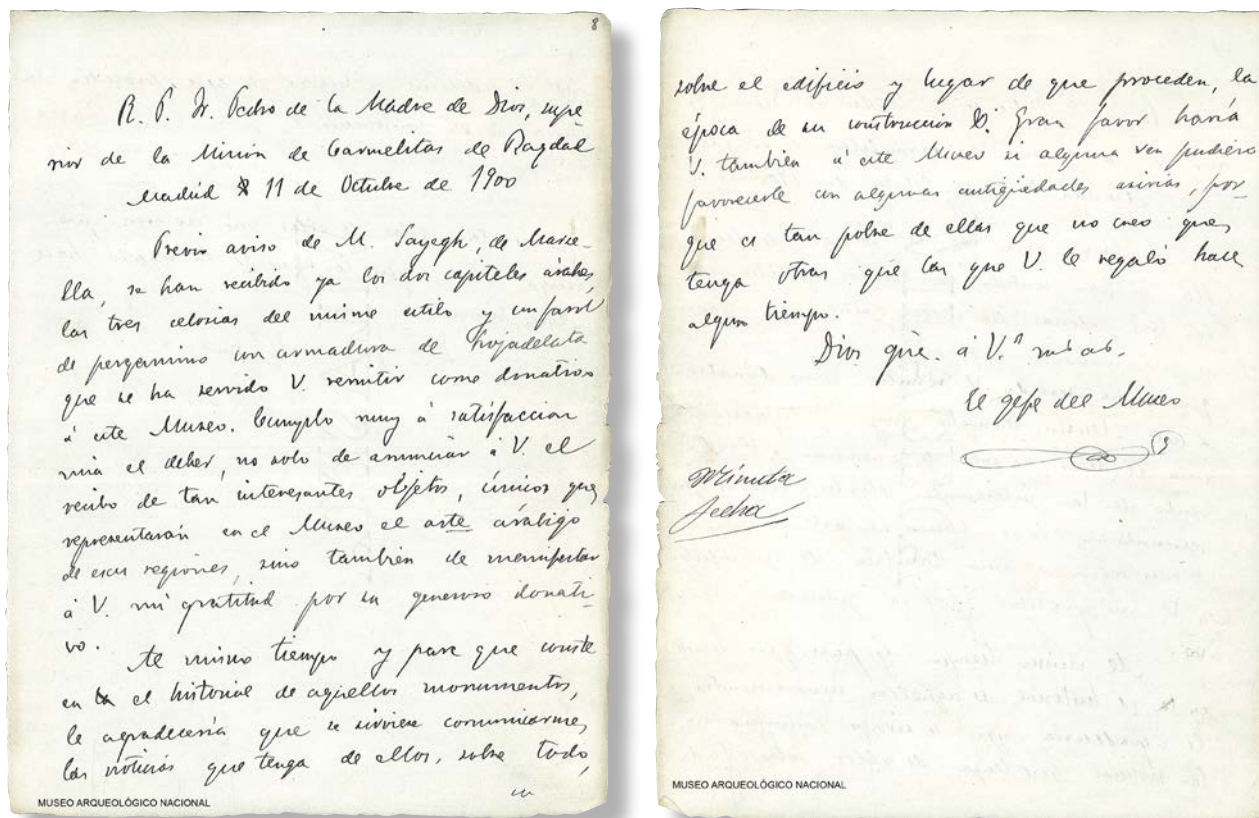 8
R. P. Fr. Pedro de la Madre de Dios, supe-
rior de la Misión de Carmelitas de Bagdad
Madrid 11 de Octubre de 1900
Previo aviso de M. Sayegh, de Marse-
lla, se han recibido ya los dos capiteles árabes,
las tres celosias del mismo estilo y un farol
de pergamino con armadura de hojadelata
que se ha servido V. remitir como donativo
á este Museo. Cumplo muy á satisfaccion
mia el deber, no solo de anunciar á V. el
recibo de tan interesantes objetos, únicos que
representarán en el Museo el arte arábigo
de esas regiones, sino tambien de manifestar
á V. mi gratitud por su generoso donati-
vo.
Al mismo tiempo y para que conste
en el historial de aquellos monumentos,
le agradecería que se sirviese comunicarme
las noticias que tenga de ellos, sobre todo,
MUSEO ARQUEOLÓGICO NACIONAL
sobre el edificio y lugar de que proceden, la
época de su construcción &. Gran favor haría
V. tambien á este Museo si alguna vez pudiera
favorecerle con algunas antigüedades asirias, por-
que es tan pobre de ellas que no creo que
tenga otras que las que V. le regaló hace
algun tiempo.
Dios gue. á V. ms. as.
El gefe del Museo
Minuta
fecha
MUSEO ARQUEOLÓGICO NACIONAL